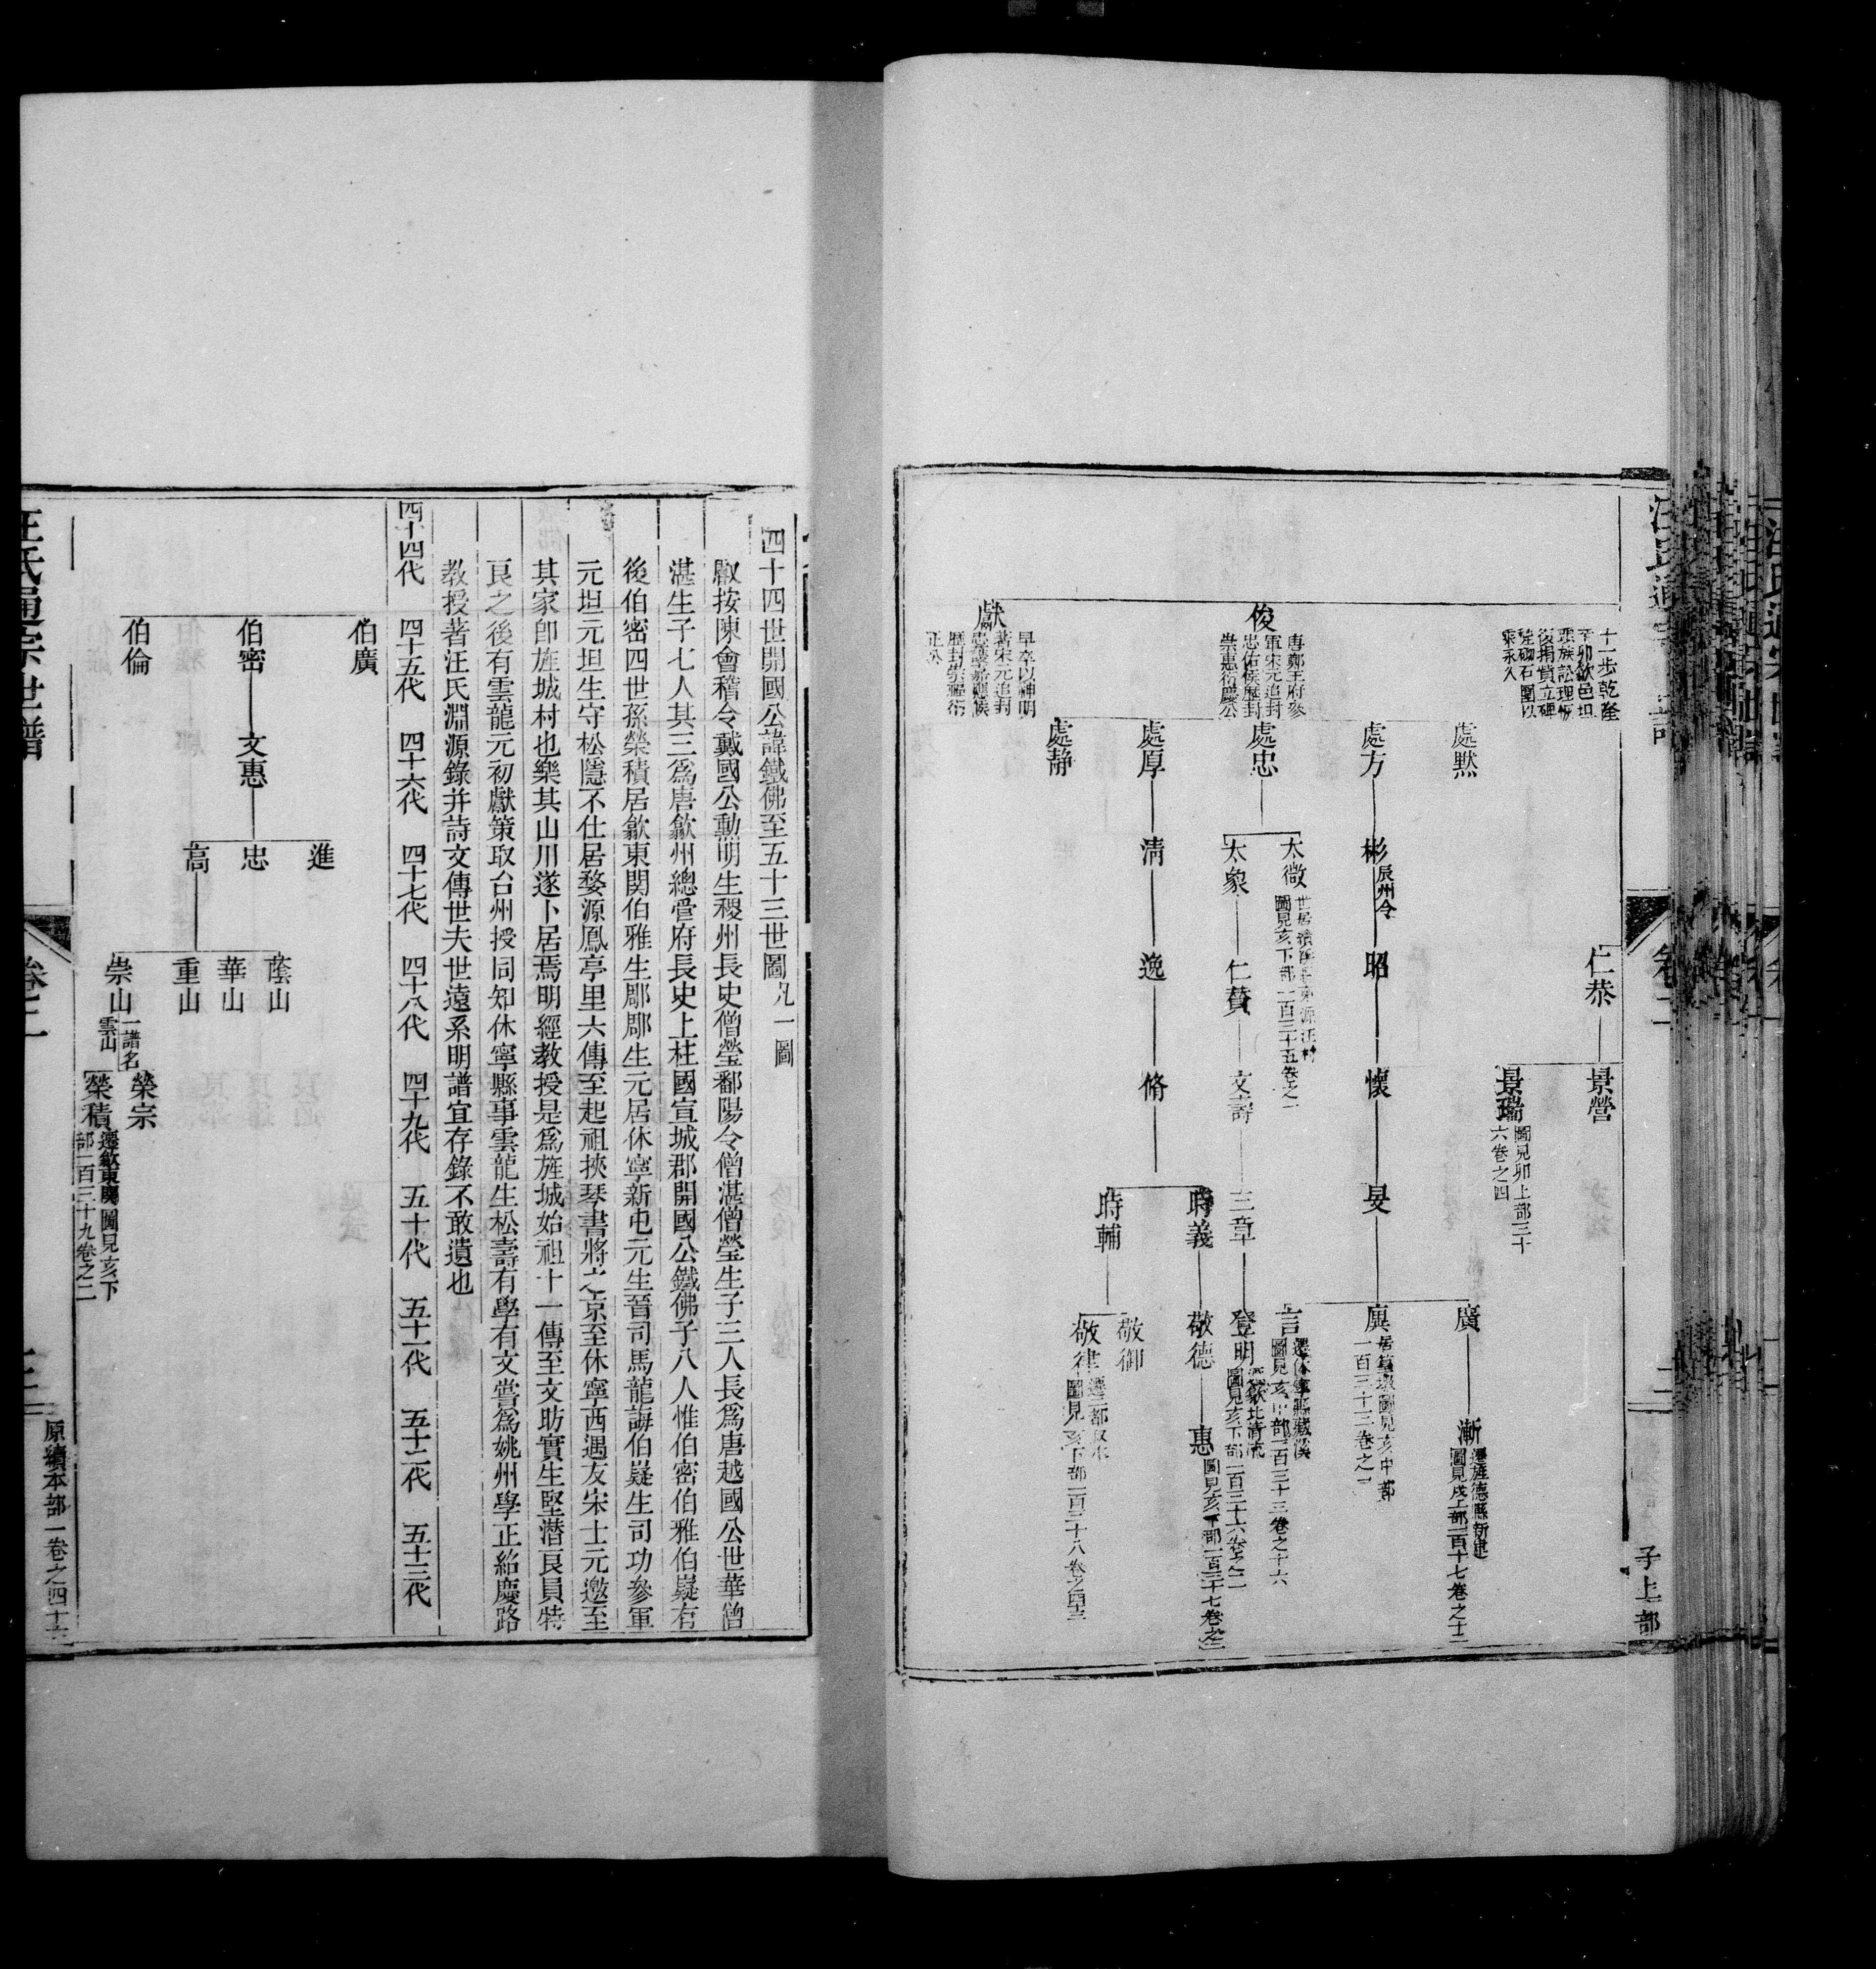 十一步乾隆
辛卯歙邑坦
後捐貲立碑
砌石圍以
垂永久
仁恭
景營
景瑞
圖見卯上部三十
六卷之四
俊
唐鄭王府參
軍宋元追封
忠佑侯歷封
崇惠衍慶公
獻
早卒以神明
著宋元追封
歷封崇福衍
正公
處默
處方
彬
辰州令
昭
懷
晏
廣
漸
遷旌德縣新建
圖見戌上部一百十七卷之十二
圖見亥中部
一百三十三卷之一
言
遷休寧縣藏溪
圖見亥中部一百三十三卷之十六
處忠
太微
圖見亥下部一百三十五卷之一
太象
仁贊
文壽
三章
登明
遷歙北清流
圖見亥下部一百三十六卷之二
處厚
清
逸
脩
時義
敬德
惠
圖見亥下部一百三十七卷之三
時輔
敬御
敬律
圖見亥下部一百三十八卷之四十三
處靜
子上部
四十四世開國公諱鐵佛至五十三世圖凡一圖
廞按陳會稽令戴國公勳明生稷州長史僧瑩鄱陽令僧湛僧瑩生子三人長爲唐越國公世華僧
湛生子七人其三爲唐歙州總管府長史上柱國宣城郡開國公鐵佛子八人惟伯密伯雅伯嶷有
後伯密四世孫榮積居歙東関伯雅生郮郮生元居休寧新屯元生晉司馬龍誨伯嶷生司功參軍
元坦元坦生守松隱不仕居婺源鳳亭里六傳至起祖挾琴書將之京至休寧西遇友宋士元邀至
其家卽旌城村也樂其山川遂卜居焉明經教授是爲旌城始祖十一傳至文昉實生堅潛艮員特
艮之後有雲龍元初獻策取台州授同知休寧縣事雲龍生松壽有學有文嘗爲姚州學正紹慶路
教授著汪氏淵源錄并詩文傳世夫世遠系明譜宜存錄不敢遺也
四十四代　四十五代　四十六代　四十七代　四十八代　四十九代　五十代　五十一代　五十二代　五十三代
伯廣
伯密
文惠
進
忠
高
蔭山
華山
重山
崇山
一譜名
雲山
榮宗
榮積
遷歙東關圖見亥下
部一百三十九卷之二
伯倫
汪氏通宗世譜
卷二
原續本部一卷之四十六